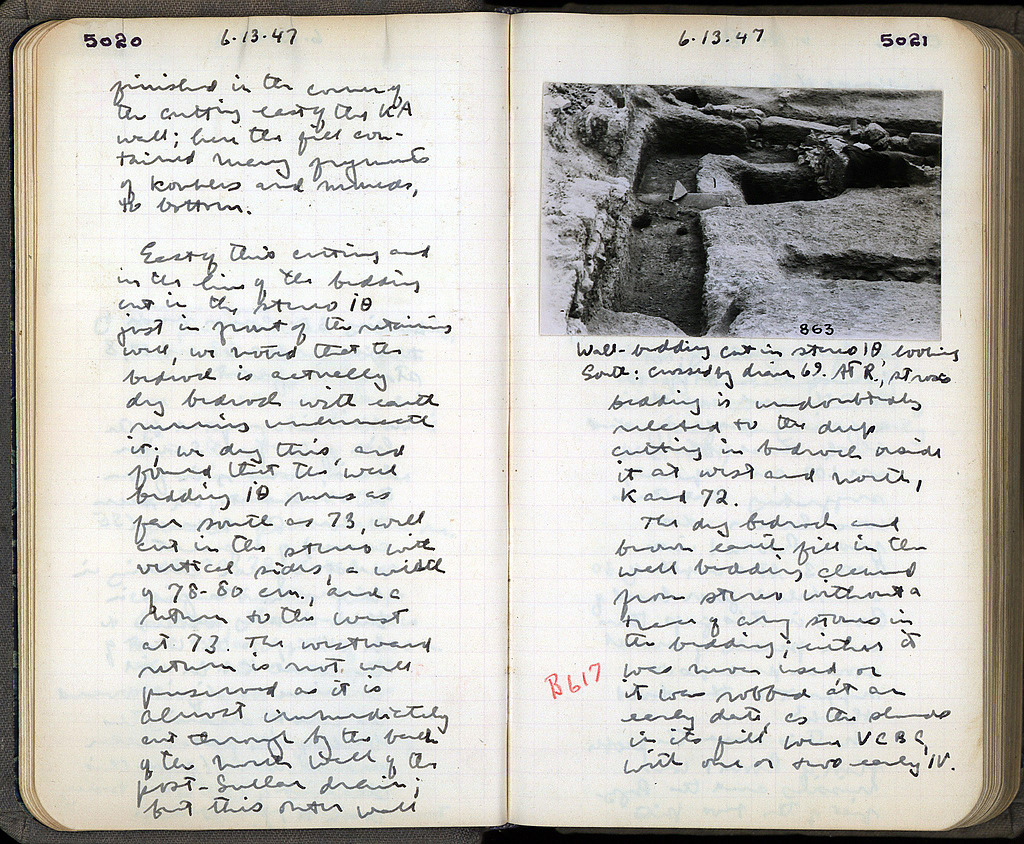 5020
6·13·47
finished in the corner of
the cutting east of the KA
wall; here the fill con-
tained many fragments
of kothers and
to bottom.
East of this cutting and
in the line of the bedding
cut in the stereo ΙΘ
just in front of the retaining
wall, we noted that the
bedrock is actually
dug bedrock with earth
running underneath
it; we dug this and
found that the wall
bedding ΙΘ runs as
far south as 73, well
cut in the stereo with
vertical sides, a width
of 78-80 cm., and a
return to the west
at 73. The westward
return is not well
preserved as it is
almost immediately
cut through by the back
of the north wall of the
post-Sullan drain;
but this outer wall
6·13·47
5021
863
Wall-bedding cut in stereo ΙΘ, looking
South: crossed by drain 69. At R.,
bedding is undoubtedly
related to the deep
cutting in bedrock inside
it at west and north,
K and 72.
The dug bedrock and
brown earth fill in the
wall bedding cleaned
from stereo without a
trace of any stones in
the bedding; either it
was never used or
it was robbed at an
early date, as the sherds
in its fill were VCBC,
with one or two early IV.
B617